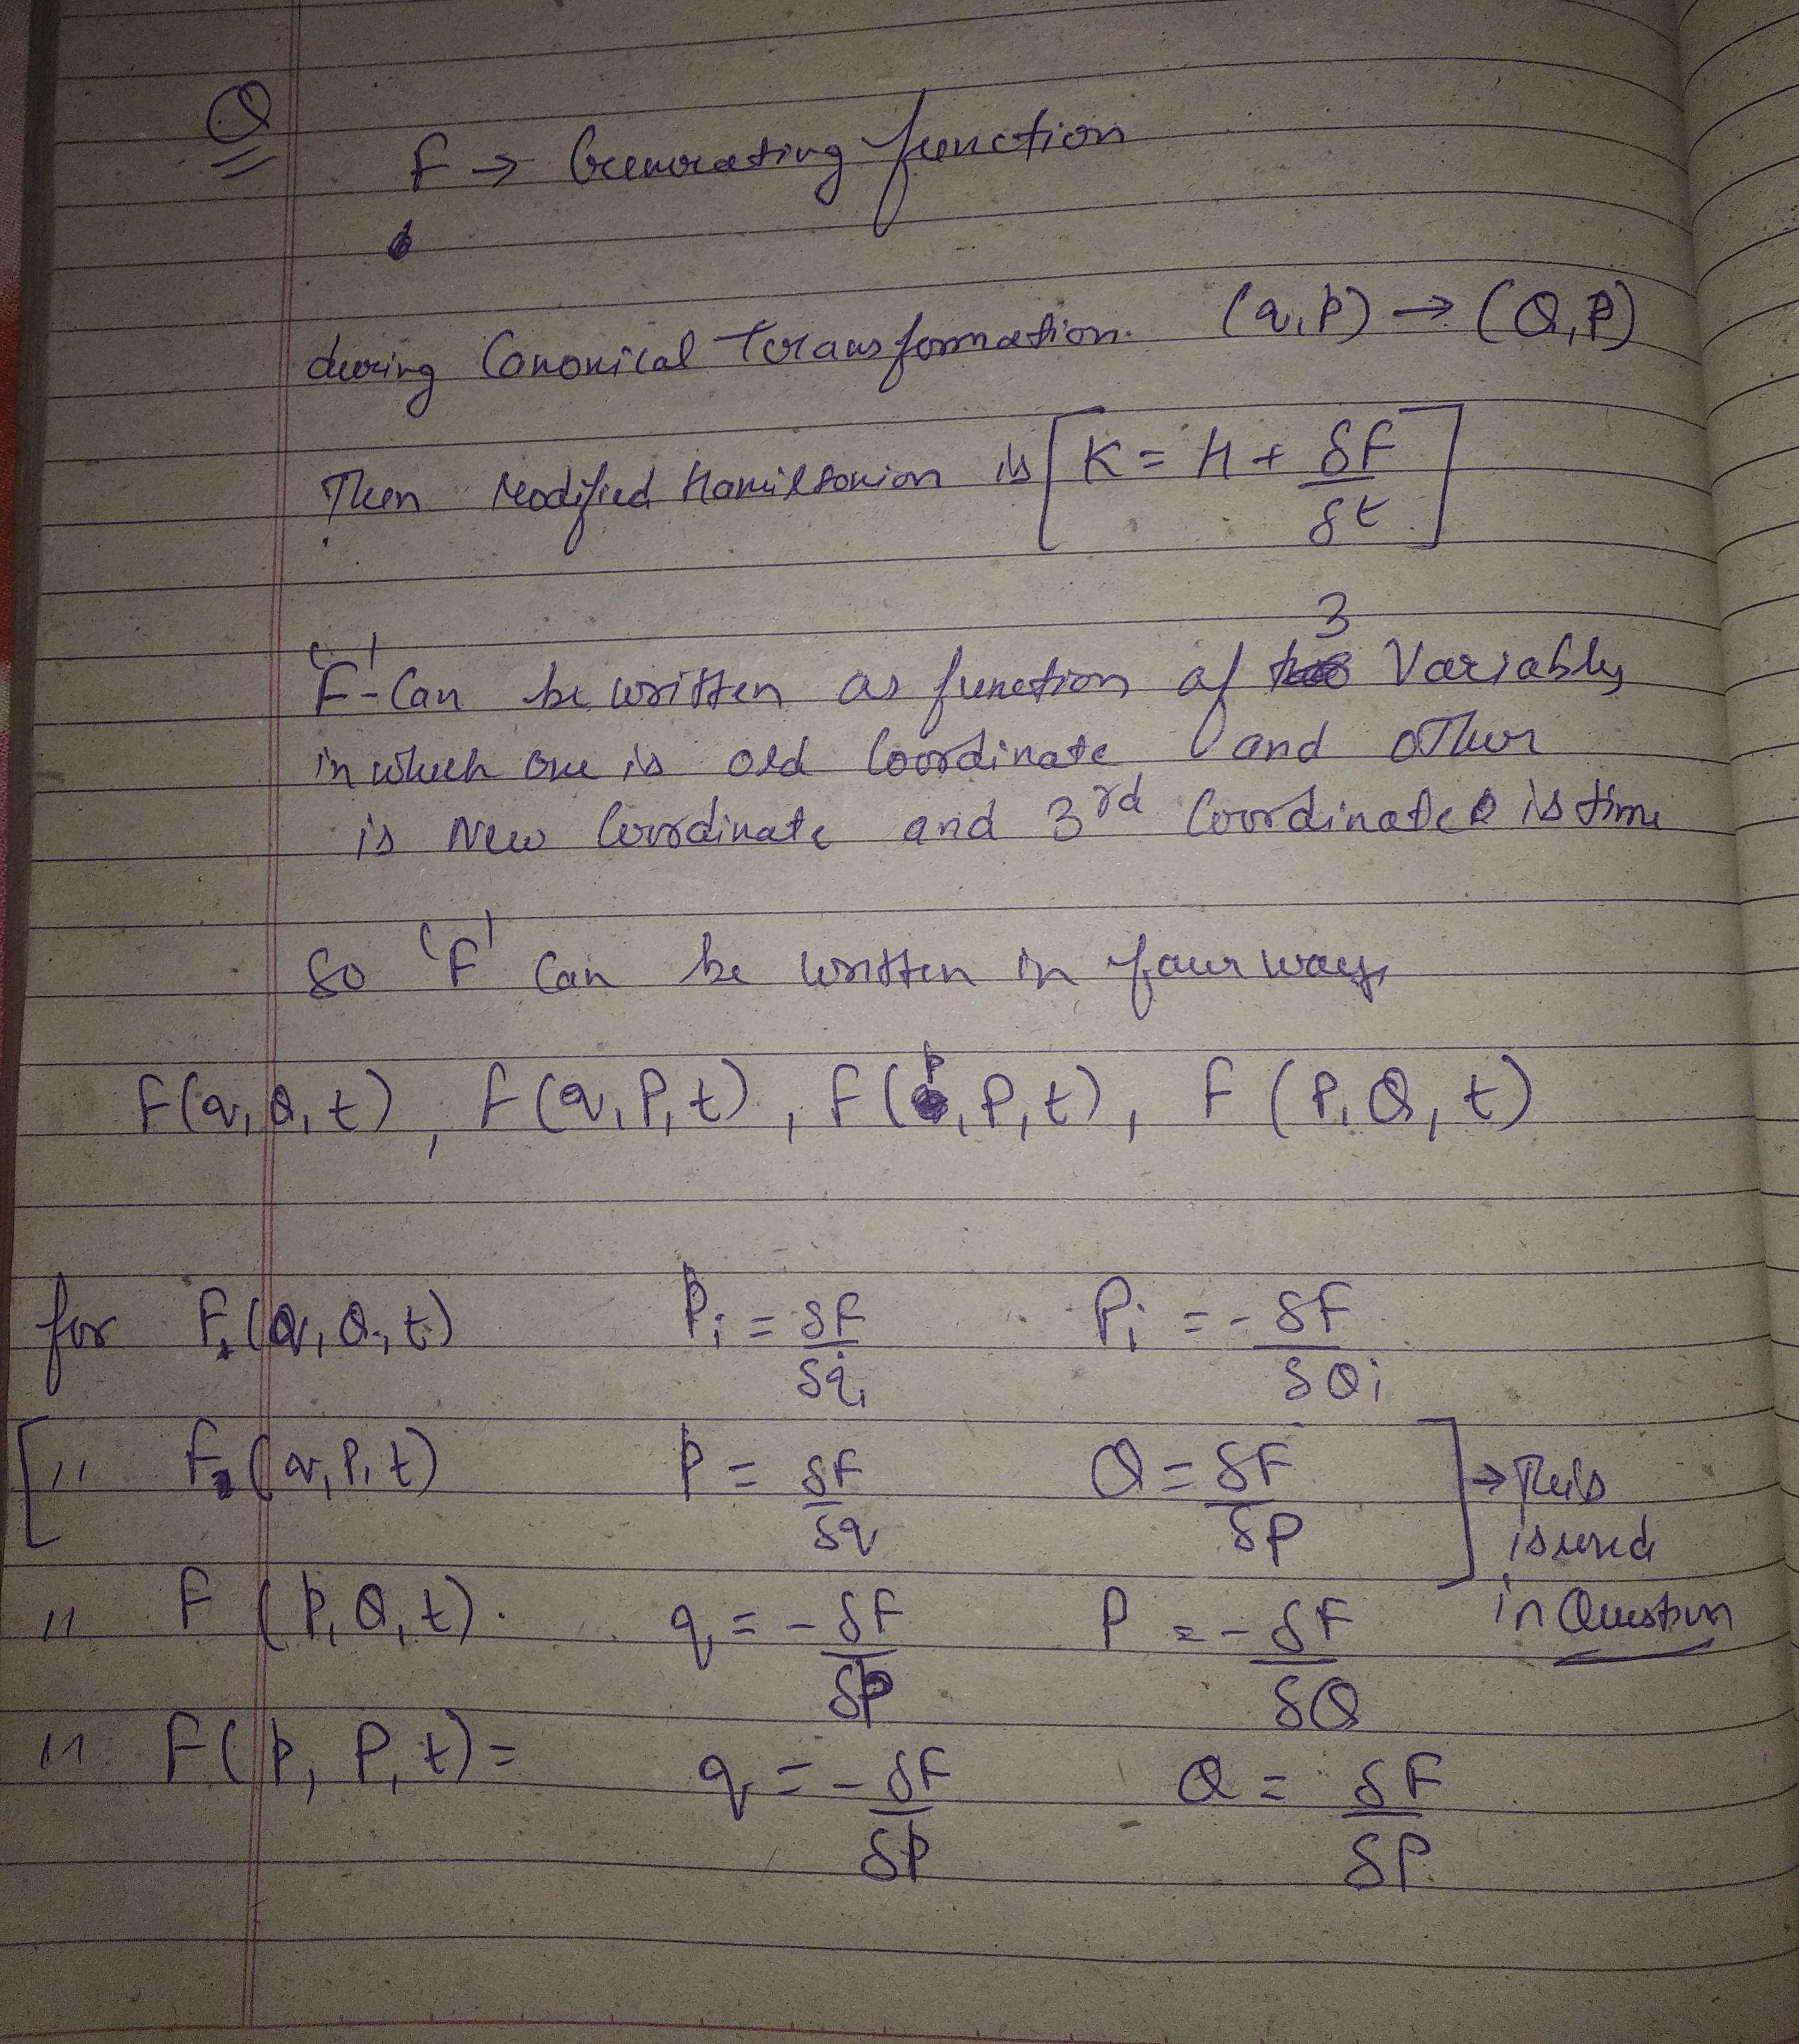 Q
F → Generating function
during Canonical Transformation. (q,p) → (Q,P)
Then Modified Hamiltonion is [K = H + δF/δt]
'F' - Can be written as function of 3 Variables
in which one is old Coordinate and other
is New Coordinate and 3rd Coordinate is time
So 'F' Can be written in four ways
F(q,Q,t), F(q,P,t), F(p,P,t), F(P,Q,t)
for F1(q,Q,t) pi = δF/δqi Pi = -δF/δQi
[ " F2(q,P,t) p = δF/δq Q = δF/δP ] → This
is used
in Question
" F(p,Q,t). q = -δF/δp P = -δF/δQ
" F(p,P,t) = q = -δF/δp Q = δF/δP